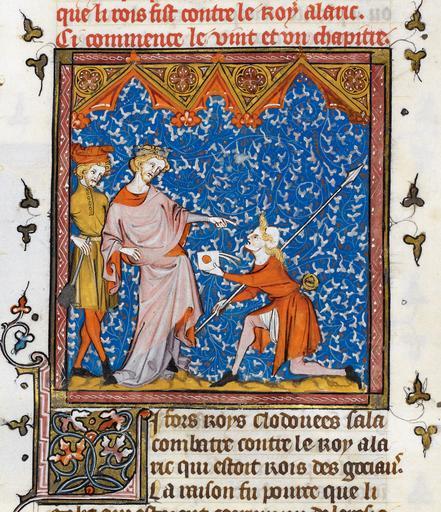 que li rois fist contre le roy alaric.
Ci commence le vint et vn chapitre.
Li fors roys clodouees sala
combatre contre le roy ala
ric qui estoit rois des gociaus.
La raison fu pource que li